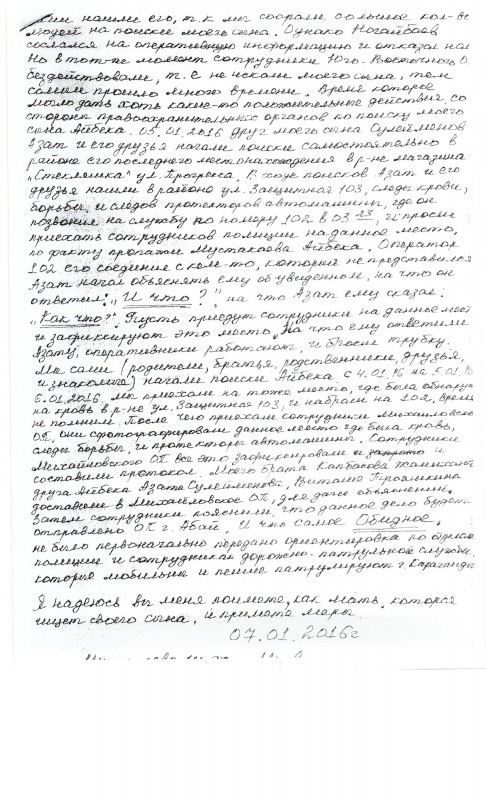 они нашли его, т.к мы собрали большое кол-во
людей на поиски моего сына. Однако Ногайбаев
сослался на оперативную информацию и отказал нам
Но в тот-же момент сотрудники Юго-Восточного О
бездействовали, т.е не искали моего сына, тем
самым прошло много времени. Время которое
могло дать хоть какие-то положительные действия, со
стороны правоохранительных органов по поиску моего
сына Айбека. 05.01.2016 друг моего сына Сулейменов
Азат и его друзья начали поиски самостоятельно в
районе его последнего местонахождения в р-не магазина
"Стекляшка" ул. Прогресса. В ходе поисков Азат и его
друзья нашли в районе ул. Защитная 103, следы крови,
борьбы, и следов протекторов автомашины, где он
позвонил на службу по номеру 102 в 03 23, и просил
приехать сотрудников полиции на данное место,
по факту пропажи Мустакаова Айбека. Оператор
102 его соединил с кем-то, который не представился
Азат начал объяснять ему об увиденном, на что он
ответил: "И что?", на что Азат ему сказал:
"Как что?". Пусть приедут сотрудники на данное мест
и зафиксируют это место. На что ему ответили
Азату, оперативники работают, и бросили трубку.
Мы сами (родители, братья, родственники, друзья,
и знакомые) начали поиски Айбека с 4.01.16 на 5.01.16
6.01.2016. мы приехали на тоже место, где была обнаруж
на кровь в р-не ул. Защитная 103, и набрали на 102, время
не помним. После чего приехали сотрудники Михайловско
ОП, они сфотографировали данное место где была кровь,
следы борьбы, и протекторы автомашины. Сотрудники
Михайловского ОП все это зафиксировали и
составили протокол. Моего брата Капбасова
друга Айбека Азата Сулейменова, Виталия
доставили в Михайловское ОП, для дачи объяснений.
Затем сотрудники пояснили, что данное дело будет
отправлено ОП г. Абай. И что самое Обидное,
не было первоначально передано ориентировка по отделам
полиции и сотрудникам дорожно-патрульной службы,
которые мобильно и пешие патрулируют г Караганды
Я надеюсь вы меня поймете, как мать, которая
ищет своего сына, и примете меры.
07.01.2016г